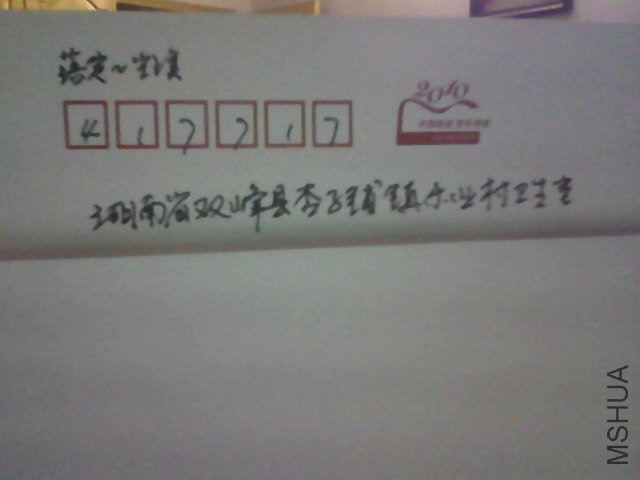 落实~掌读
417717
2010
湖南省双峰县杏子铺镇乐业村卫生室
MSHUA